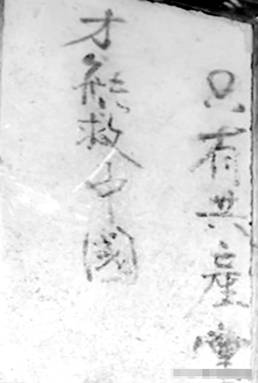 只有共産党
才能救中國